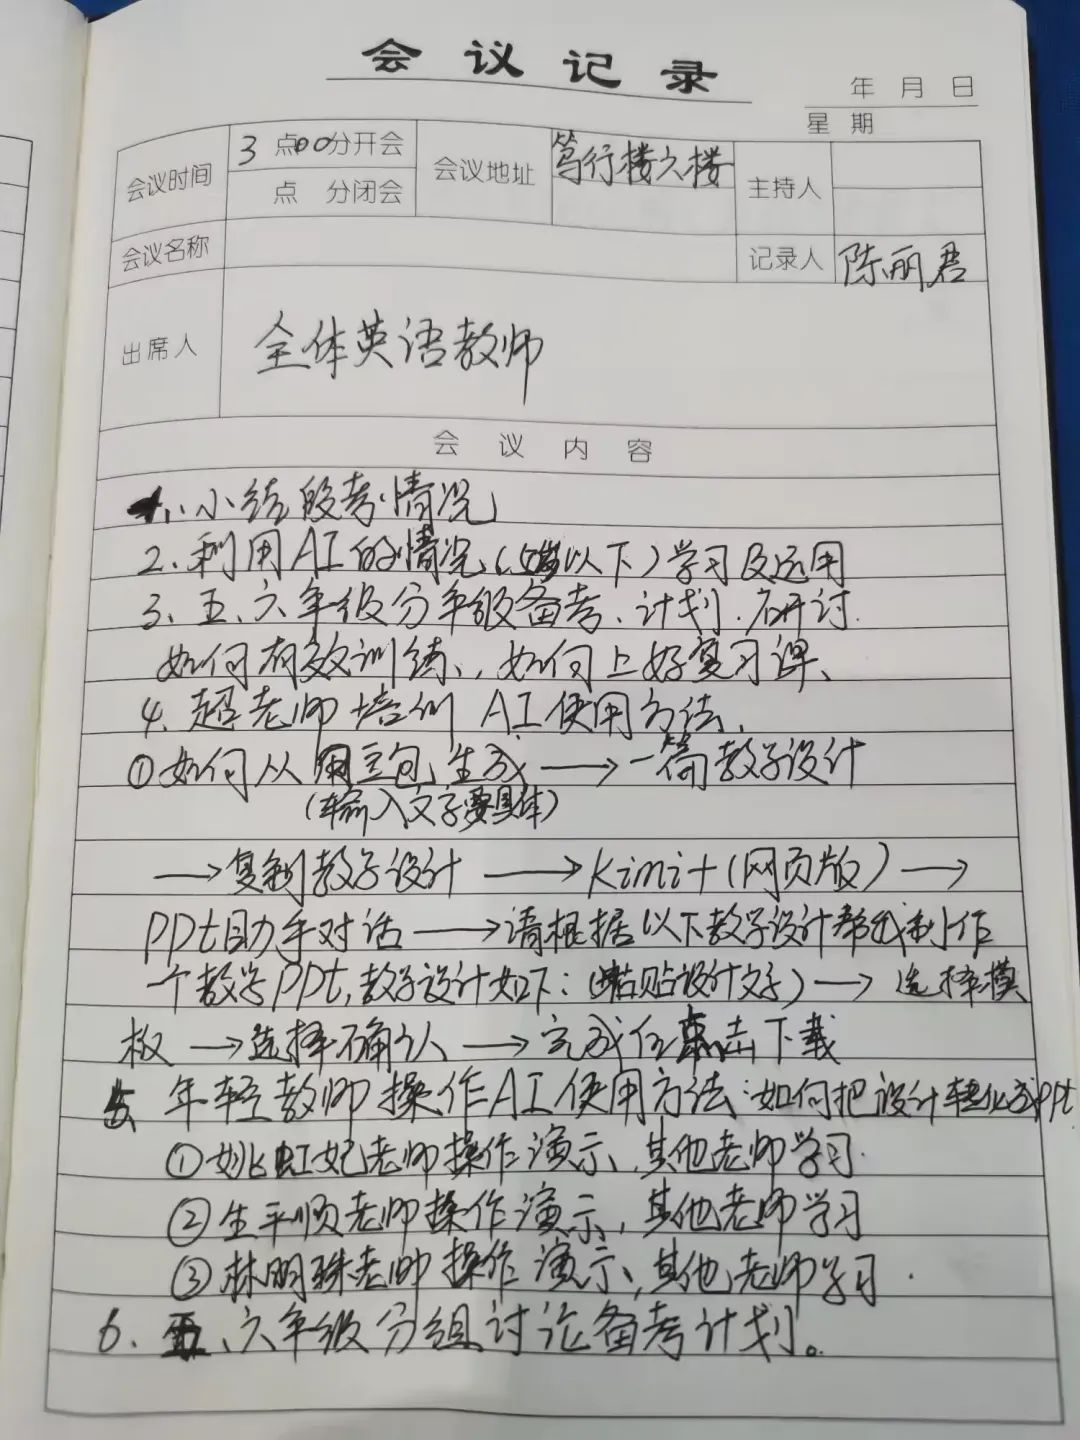 会议记录
年 月 日
星 期
会议时间 3 点00分开会 会议地址 笃行楼六楼 主持人
点 分闭会
会议名称 记录人 陈丽君
出席人 全体英语教师
会议内容
1、小结段考情况
2、利用AI的情况、(岁以下)学习及运用
3、五、六年级分年级备考、计划、研讨.
如何有效训练、,如何上好复习课、
4、超老师培训 AI使用方法、
①如何从用豆包生成 → 一篇教学设计
(输入文字要具体)
→复制教学设计 → kimi+(网页版) →
PPt助手对话 → 请根据以下教学设计帮我制作
一个教学PPt,教学设计如下:(粘贴设计文字) → 选择模
板 → 选择确认 → 完成任点击下载
5 年轻教师操作AI使用方法:如何把设计转化成PPt
①姚虹妃老师操作演示,其他老师学习.
②生平顺老师操作演示,其他老师学习
③林明珠老师操作演示、其他老师学习.
6、五、六年级分组讨论备考计划。